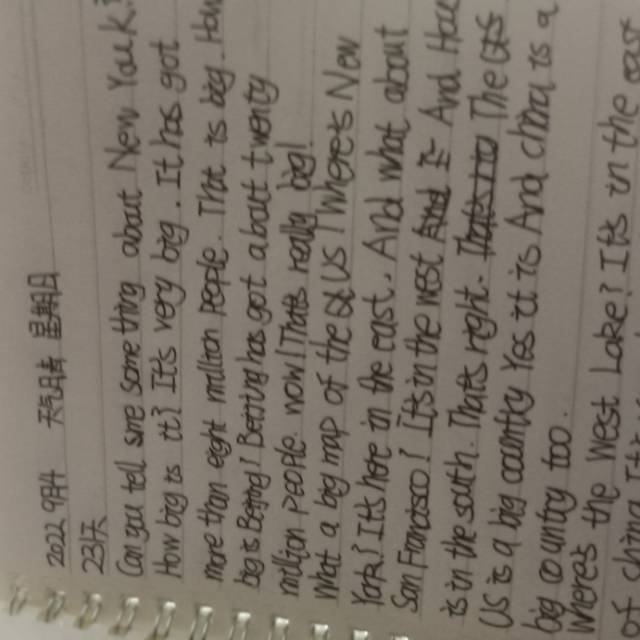 2022 9月 星期日
23天
Can you tell some thing about New York?
How big is it? It's very big. It has got
more than eight million people. That is big. How
big is Beijing? Beijing has got about twenty
million people. now! Thats really big!
What a big map of the US! Where's New
York? It's here in the east. And what about
San Francisco? It's in the west. And Hou
is in the south. Thats right. The
US is a big country Yes it is And china is a
big country too.
Wheres the West Lake? It's in the eas
of china